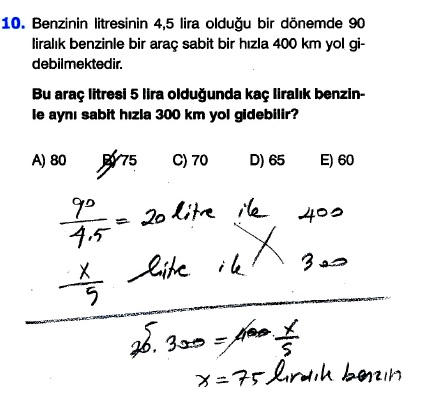 10. Benzinin litresinin 4,5 lira olduğu bir dönemde 90
liralık benzinle bir araç sabit bir hızla 400 km yol gi-
debilmektedir.
Bu araç litresi 5 lira olduğunda kaç liralık benzin-
le aynı sabit hızla 300 km yol gidebilir?
A) 80 B) 75 C) 70 D) 65 E) 60
90/4.5 = 20 litre ile 400
x/5 litre ile 300
5
20. 300 = 400. x/5
x = 75 liralık benzin